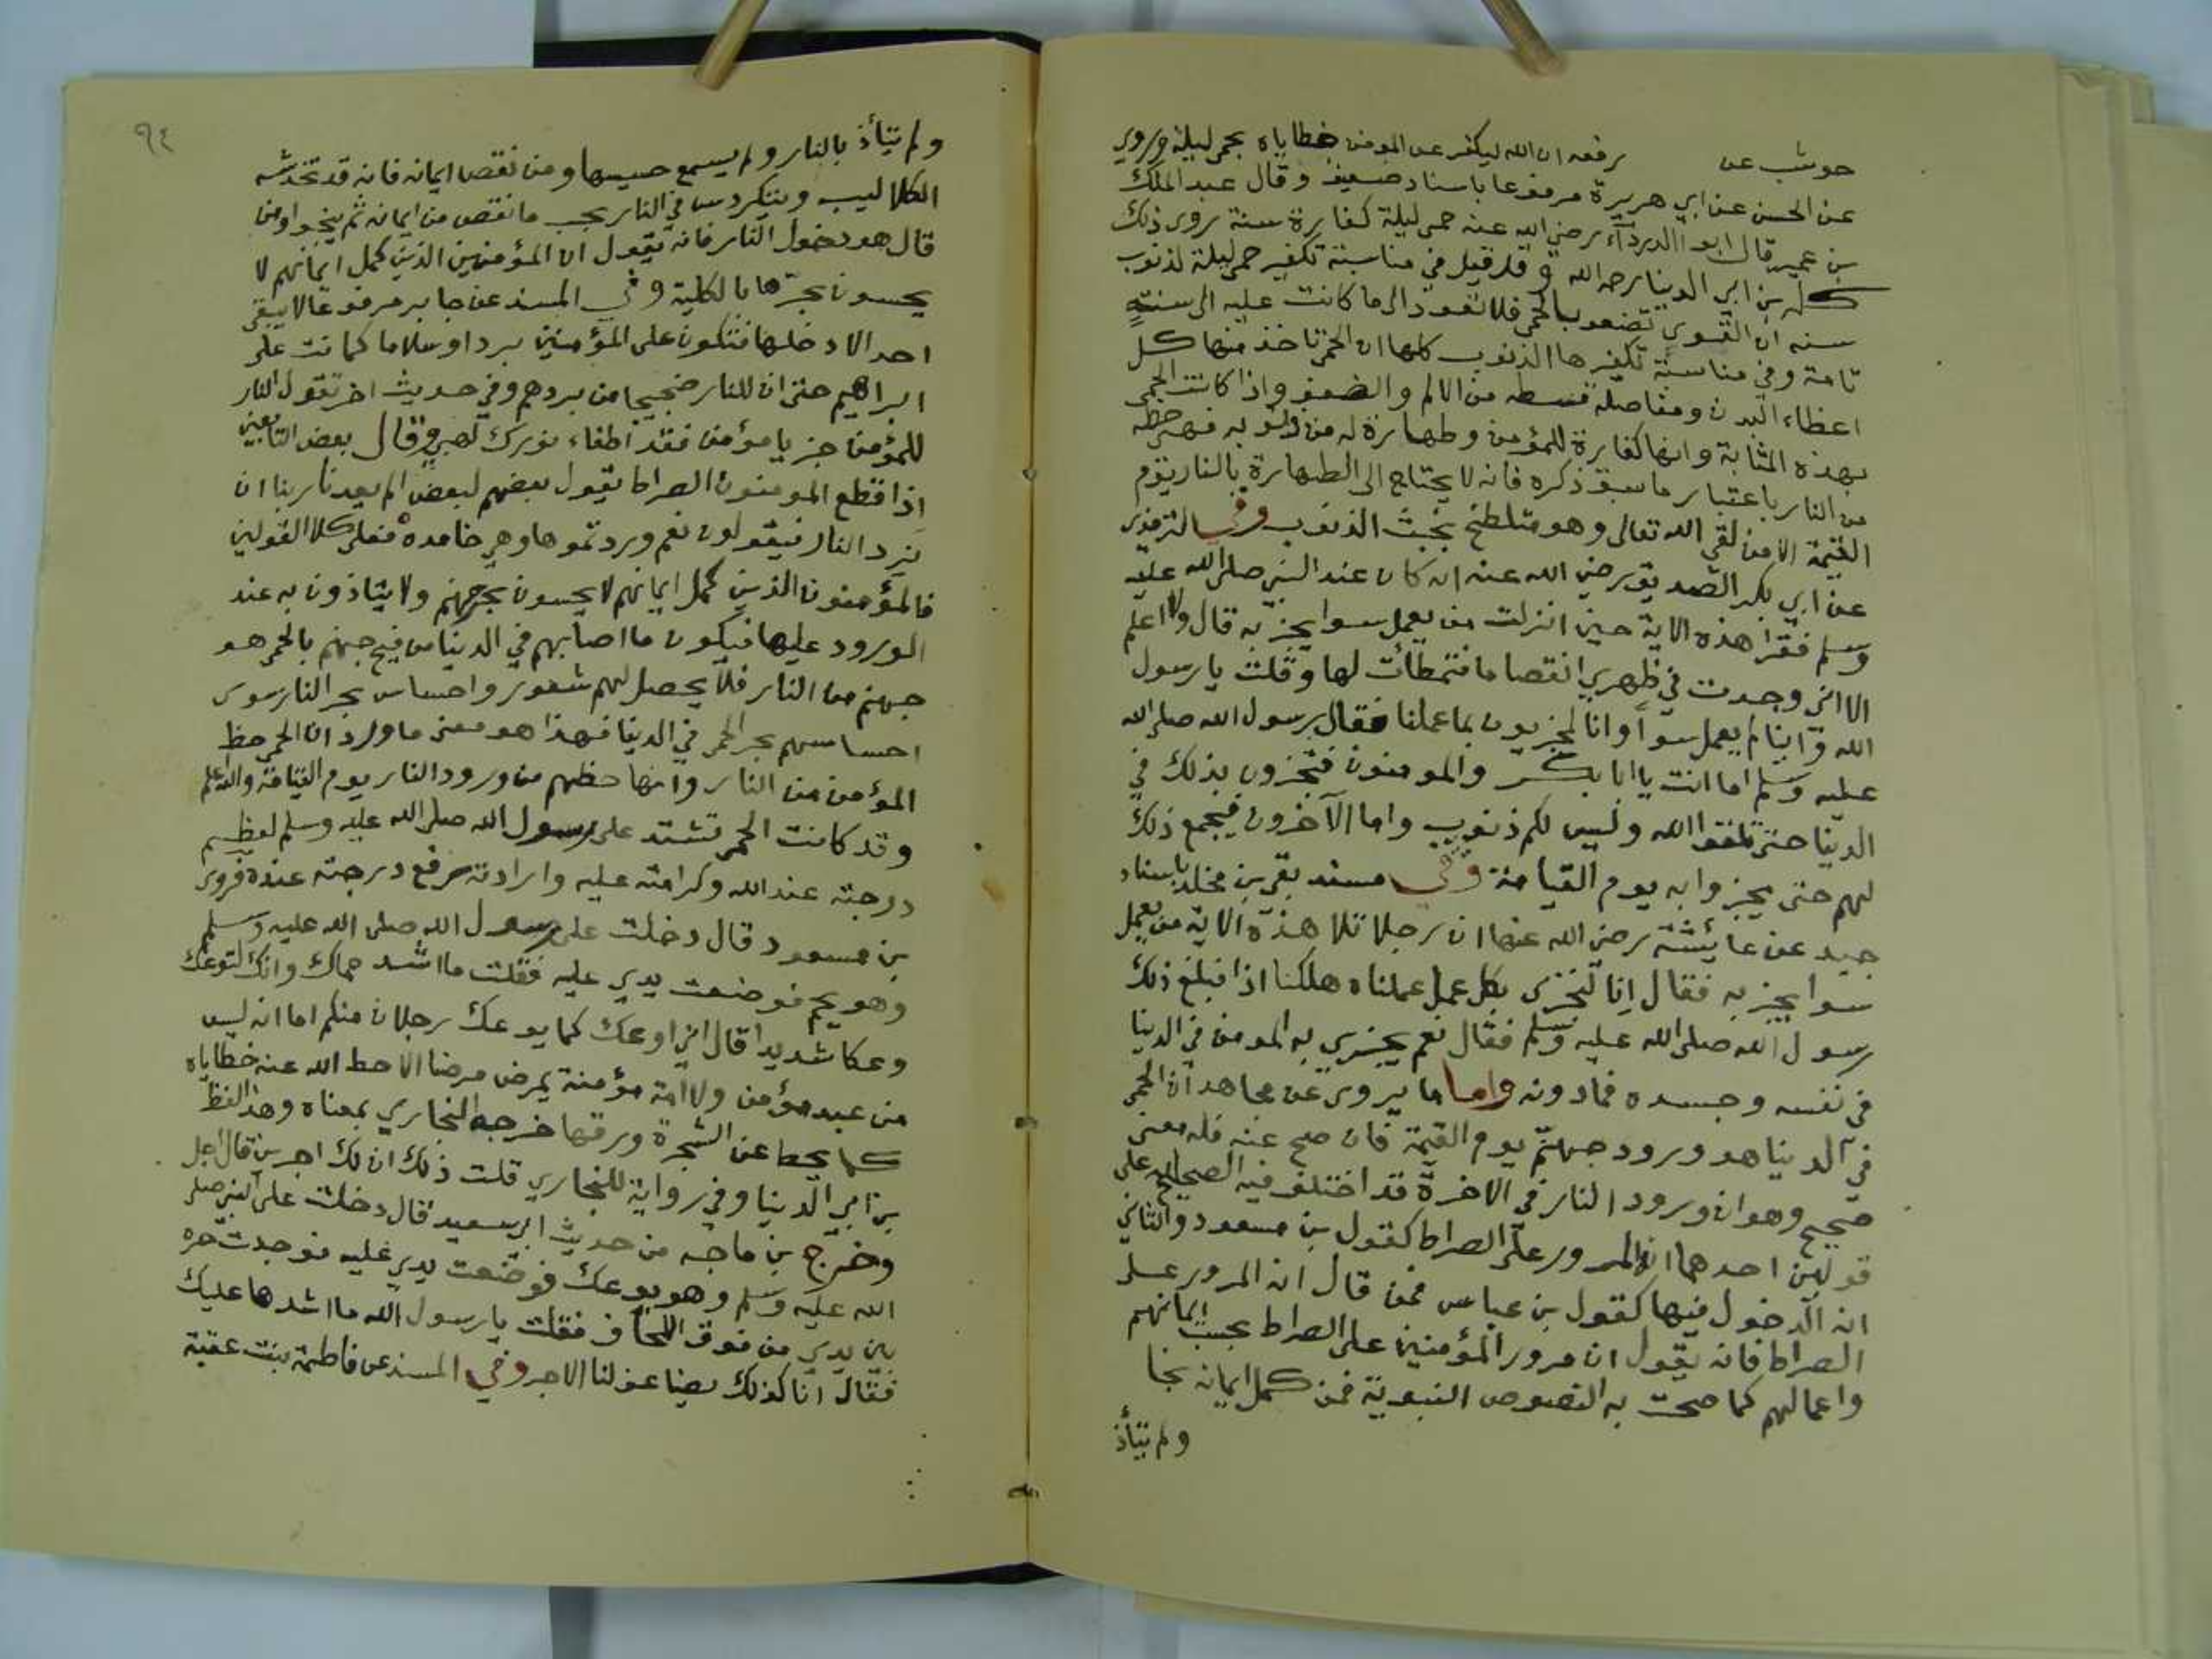 حوشب عن يرفعه ان الله ليكفر عن المومن خطاياه بحمى ليلة وروي
عن الحسن عن ابي هريرة مرفوعا باسناد ضعيف وقال عبد الملك
بن عمير قال ابو الدرداء رضي الله عنه حمى ليلة كفارة سنة روى ذلك
كله بن ابي الدنيا رحمه الله وقد قيل في مناسبة تكفير حمى ليلة لذنوب
سنه ان القوى تضعف بالحمى فلا تعود الى ما كانت عليه الى سنة
تامة وفي مناسبة تكفيرها الذنوب كلها ان الحمى تاخذ منها كل
اعظاء البدن ومفاصله قسطه من الالم والضعف واذا كانت الحمى
بهذه المثابة وانها كفارة للمؤمن وطهارة له من ذنوبه فهي حظه
من النار باعتبار ما سبق ذكره فانه لا يحتاج الى الطهارة بالنار يوم
القيمة الا من لقي الله تعالى وهو متلطخ بخبث الذنوب وفي الترمذي
عن ابي بكر الصديق رضي الله عنه انه كان عند النبي صلى الله عليه
وسلم فقرا هذه الاية حين انزلت من يعمل سوا يجز به قال ولا اعلم
الا اني وجدت في ظهري انقصاما فتمطأت لها وقلت يا رسول
الله واينا لم يعمل سوأ وانا لمجزيون بما عملنا فقال رسول الله صلى الله
عليه وسلم اما انت يا ابا بكر والمومنون فتجزون بذلك في
الدنيا حتى تلقوا الله وليس لكم ذنوب واما الآخرون فيجمع ذلك
لهم حتى يجزوا به يوم القيامة وفي مسند بقي بن مخلد باسناد
جيد عن عائشة رضي الله عنها ان رجلا تلا هذه الاية من يعمل
سوا يجز به فقال انا لنجزى بكل عمل عملناه هلكنا اذا فبلغ ذلك
رسول الله صلى الله عليه وسلم فقال نعم يجزي به المومن في الدنيا
في نفسه وجسده فمادونه واما ما يروى عن مجاهد ان الحمى
في الدنيا هو ورود جهنم يوم القيمة فان صح عنه فله معنى
صحيح وهو ان ورود النار في الاخرة قد اختلف فيه الصحابه على
قولين احدهما انه المرور على الصراط كقول بن مسعود والثاني
انه الدخول فيها كقول بن عباس فمن قال ان المرور على
الصراط فانه يقول ان مرور المؤمنين على الصراط بحسب ايمانهم
واعمالهم كما صحت به النصوص النبوية فمن كمل ايمانه نجا
ولم يتأذ
٩٤
ولم يتأذ بالنار ولم يسمع حسيسها ومن نقص ايمانه فانه قد تخدشه
الكلاليب ويتكردس في النار بحسب ما نقص من ايمانه ثم ينجوا ومن
قال هو دخول النار فانه يقول ان المؤمنين الذين كمل ايمانهم لا
يحسون بحرها بالكلية وفي المسند عن جابر مرفوعا لا يبقى
احد الا دخلها فتكون على المؤمنين بردا وسلاما كما كانت على
ابراهيم حتى ان للنار ضجيجا من بردهم وفي حديث اخر تقول النار
للمؤمن جز يا مؤمن فقد اطفاء نورك لهبي وقال بعض التابعين
اذا قطع المومنون الصراط يقول بعضهم لبعض الم يعدنا ربنا ان
نرد النار فيقولون نعم وردتموها وهي خامدة فعلى كلا القولين
فالمؤمنون الذين كمل ايمانهم لا يحسون بحر جهنم ولا يتاذون به عند
الورود عليها فيكون ما اصابهم في الدنيا من فيح جهنم بالحمى هو
جهنم من النار فلا يحصل لهم شعور واحساس بحر النار سوى
احساسهم بحر الحمى في الدنيا فهذا هو معنى ما ورد ان الحمى حظ
المؤمن من النار وانها حظهم من ورود النار يوم القيامة والله اعلم
وقد كانت الحمى تشتد على رسول الله صلى الله عليه وسلم لعظيم
درجته عند الله وكرامته عليه وارادته رفع درجته عنده فروى
بن مسعود قال دخلت على رسول الله صلى الله عليه وسلم
وهو يحم فوضعت يدي عليه فقلت ما اشد حماك وانك لتوعك
وعكا شديدا قال اني اوعك كما يوعك رجلان منكم اما انه ليس
من عبد مؤمن ولا امة مؤمنة يمرض مرضا الا حط الله عنه خطاياه
كما يحط عن الشجرة ورقها خرجه البخاري بمعناه وهذا لفظ
بن ابي الدنيا وفي رواية للبخاري قلت ذلك ان لك اجرين قال اجل
وخرج بن ماجه من حديث ابي سعيد قال دخلت على النبي صلى
الله عليه وسلم وهو يوعك فوضعت يدي عليه فوجدت حره
بين يدي من فوق اللحاف فقلت يا رسول الله ما اشدها عليك
فقال انا كذلك يضاعف لنا الاجر وفي المسند عن فاطمة بنت عقبة